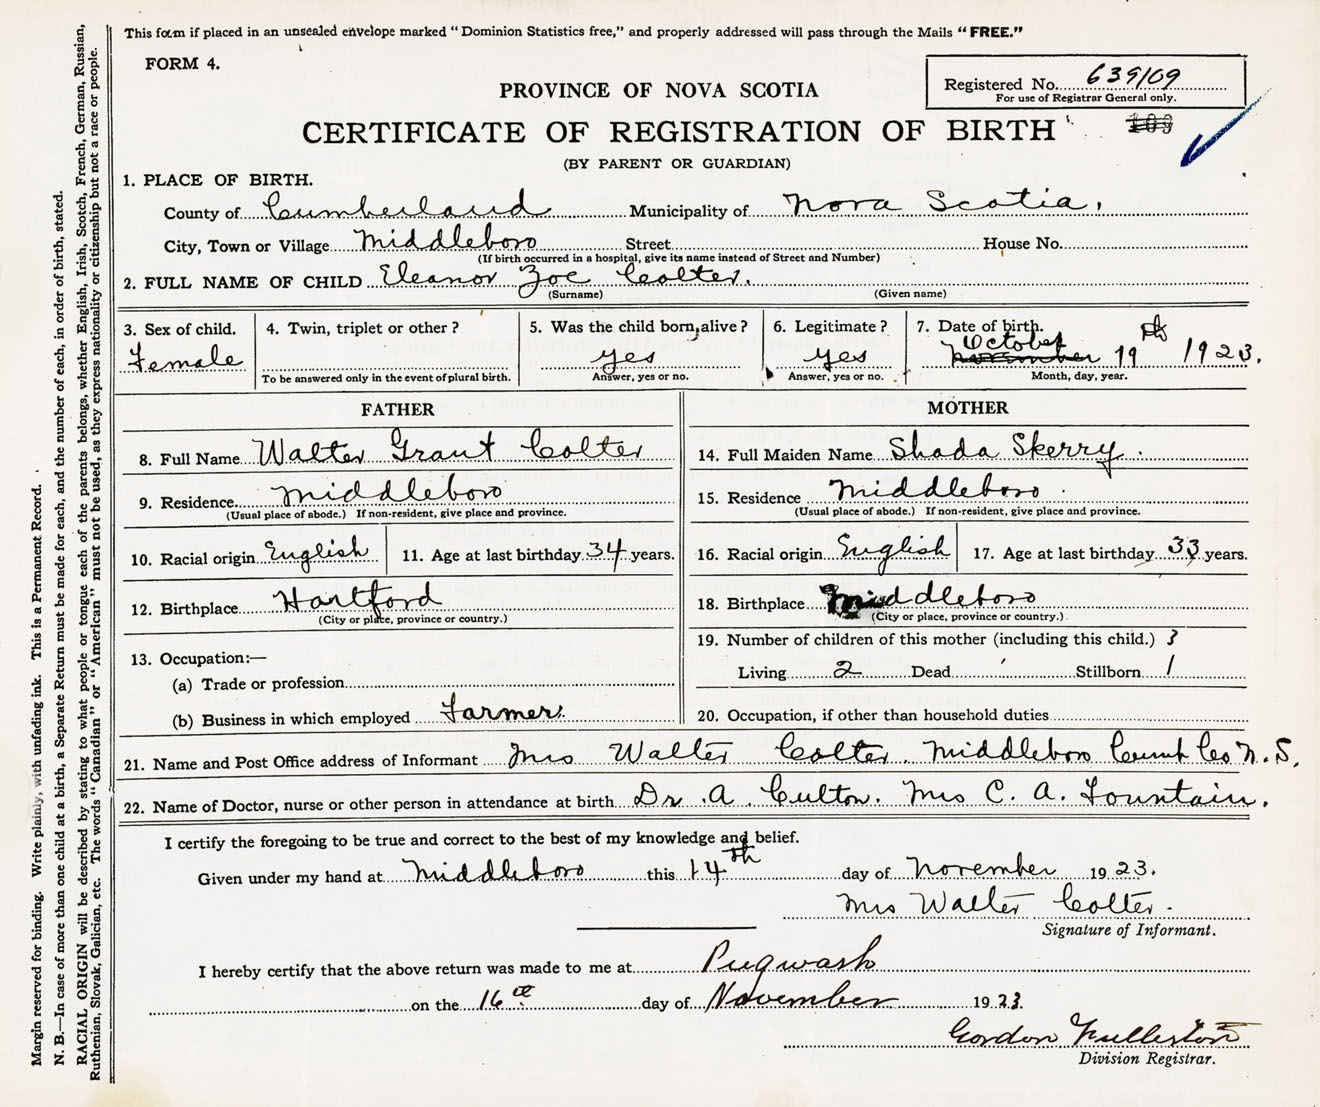 This form if placed in an unsealed envelope marked "Dominion Statistics free," and properly addressed will pass through the Mails "FREE."
FORM 4.
Registered No. 639109
For use of Registrar General only.
PROVINCE OF NOVA SCOTIA
CERTIFICATE OF REGISTRATION OF BIRTH
(BY PARENT OR GUARDIAN)
1. PLACE OF BIRTH.
County of Cumberland Municipality of Nova Scotia.
City, Town or Village Middleboro Street House No.
(If birth occurred in a hospital, give its name instead of Street and Number)
2. FULL NAME OF CHILD Eleanor Zoe Colter.
(Surname) (Given name)
3. Sex of child. 4. Twin, triplet or other? 5. Was the child born alive? 6. Legitimate? 7. Date of birth.
Female yes yes October 19th 1923.
To be answered only in the event of plural birth. Answer, yes or no. Answer, yes or no. Month, day, year.
FATHER
8. Full Name Walter Grant Colter
9. Residence Middleboro
(Usual place of abode.) If non-resident, give place and province.
10. Racial origin English 11. Age at last birthday 34 years.
12. Birthplace Hartford
(City or place, province or country.)
13. Occupation:—
(a) Trade or profession
(b) Business in which employed Farmer
MOTHER
14. Full Maiden Name Shada Skerry.
15. Residence Middleboro.
(Usual place of abode.) If non-resident, give place and province.
16. Racial origin English 17. Age at last birthday 33 years.
18. Birthplace Middleboro
(City or place, province or country.)
19. Number of children of this mother (including this child.) 3
Living 2 Dead Stillborn 1
20. Occupation, if other than household duties
21. Name and Post Office address of Informant Mrs Walter Colter. Middleboro Cumb Co N.S.
22. Name of Doctor, nurse or other person in attendance at birth Dr. A. Culton. Mrs C. A. Fountain.
I certify the foregoing to be true and correct to the best of my knowledge and belief.
Given under my hand at Middleboro this 14th day of November 1923.
Mrs Walter Colter.
Signature of Informant.
I hereby certify that the above return was made to me at Pugwash
on the 16th day of November 1923.
Gordon Fullerton
Division Registrar.
Margin reserved for binding. Write plainly, with unfading ink. This is a Permanent Record.
N. B.—In case of more than one child at a birth, a Separate Return must be made for each, and the number of each, in order of birth, stated.
RACIAL ORIGIN will be described by stating to what people or tongue each of the parents belongs, whether English, Irish, Scotch, French, German, Russian,
Ruthenian, Slovak, Galician, etc. The words "Canadian" or "American" must not be used, as they express nationality or citizenship but not a race or people.